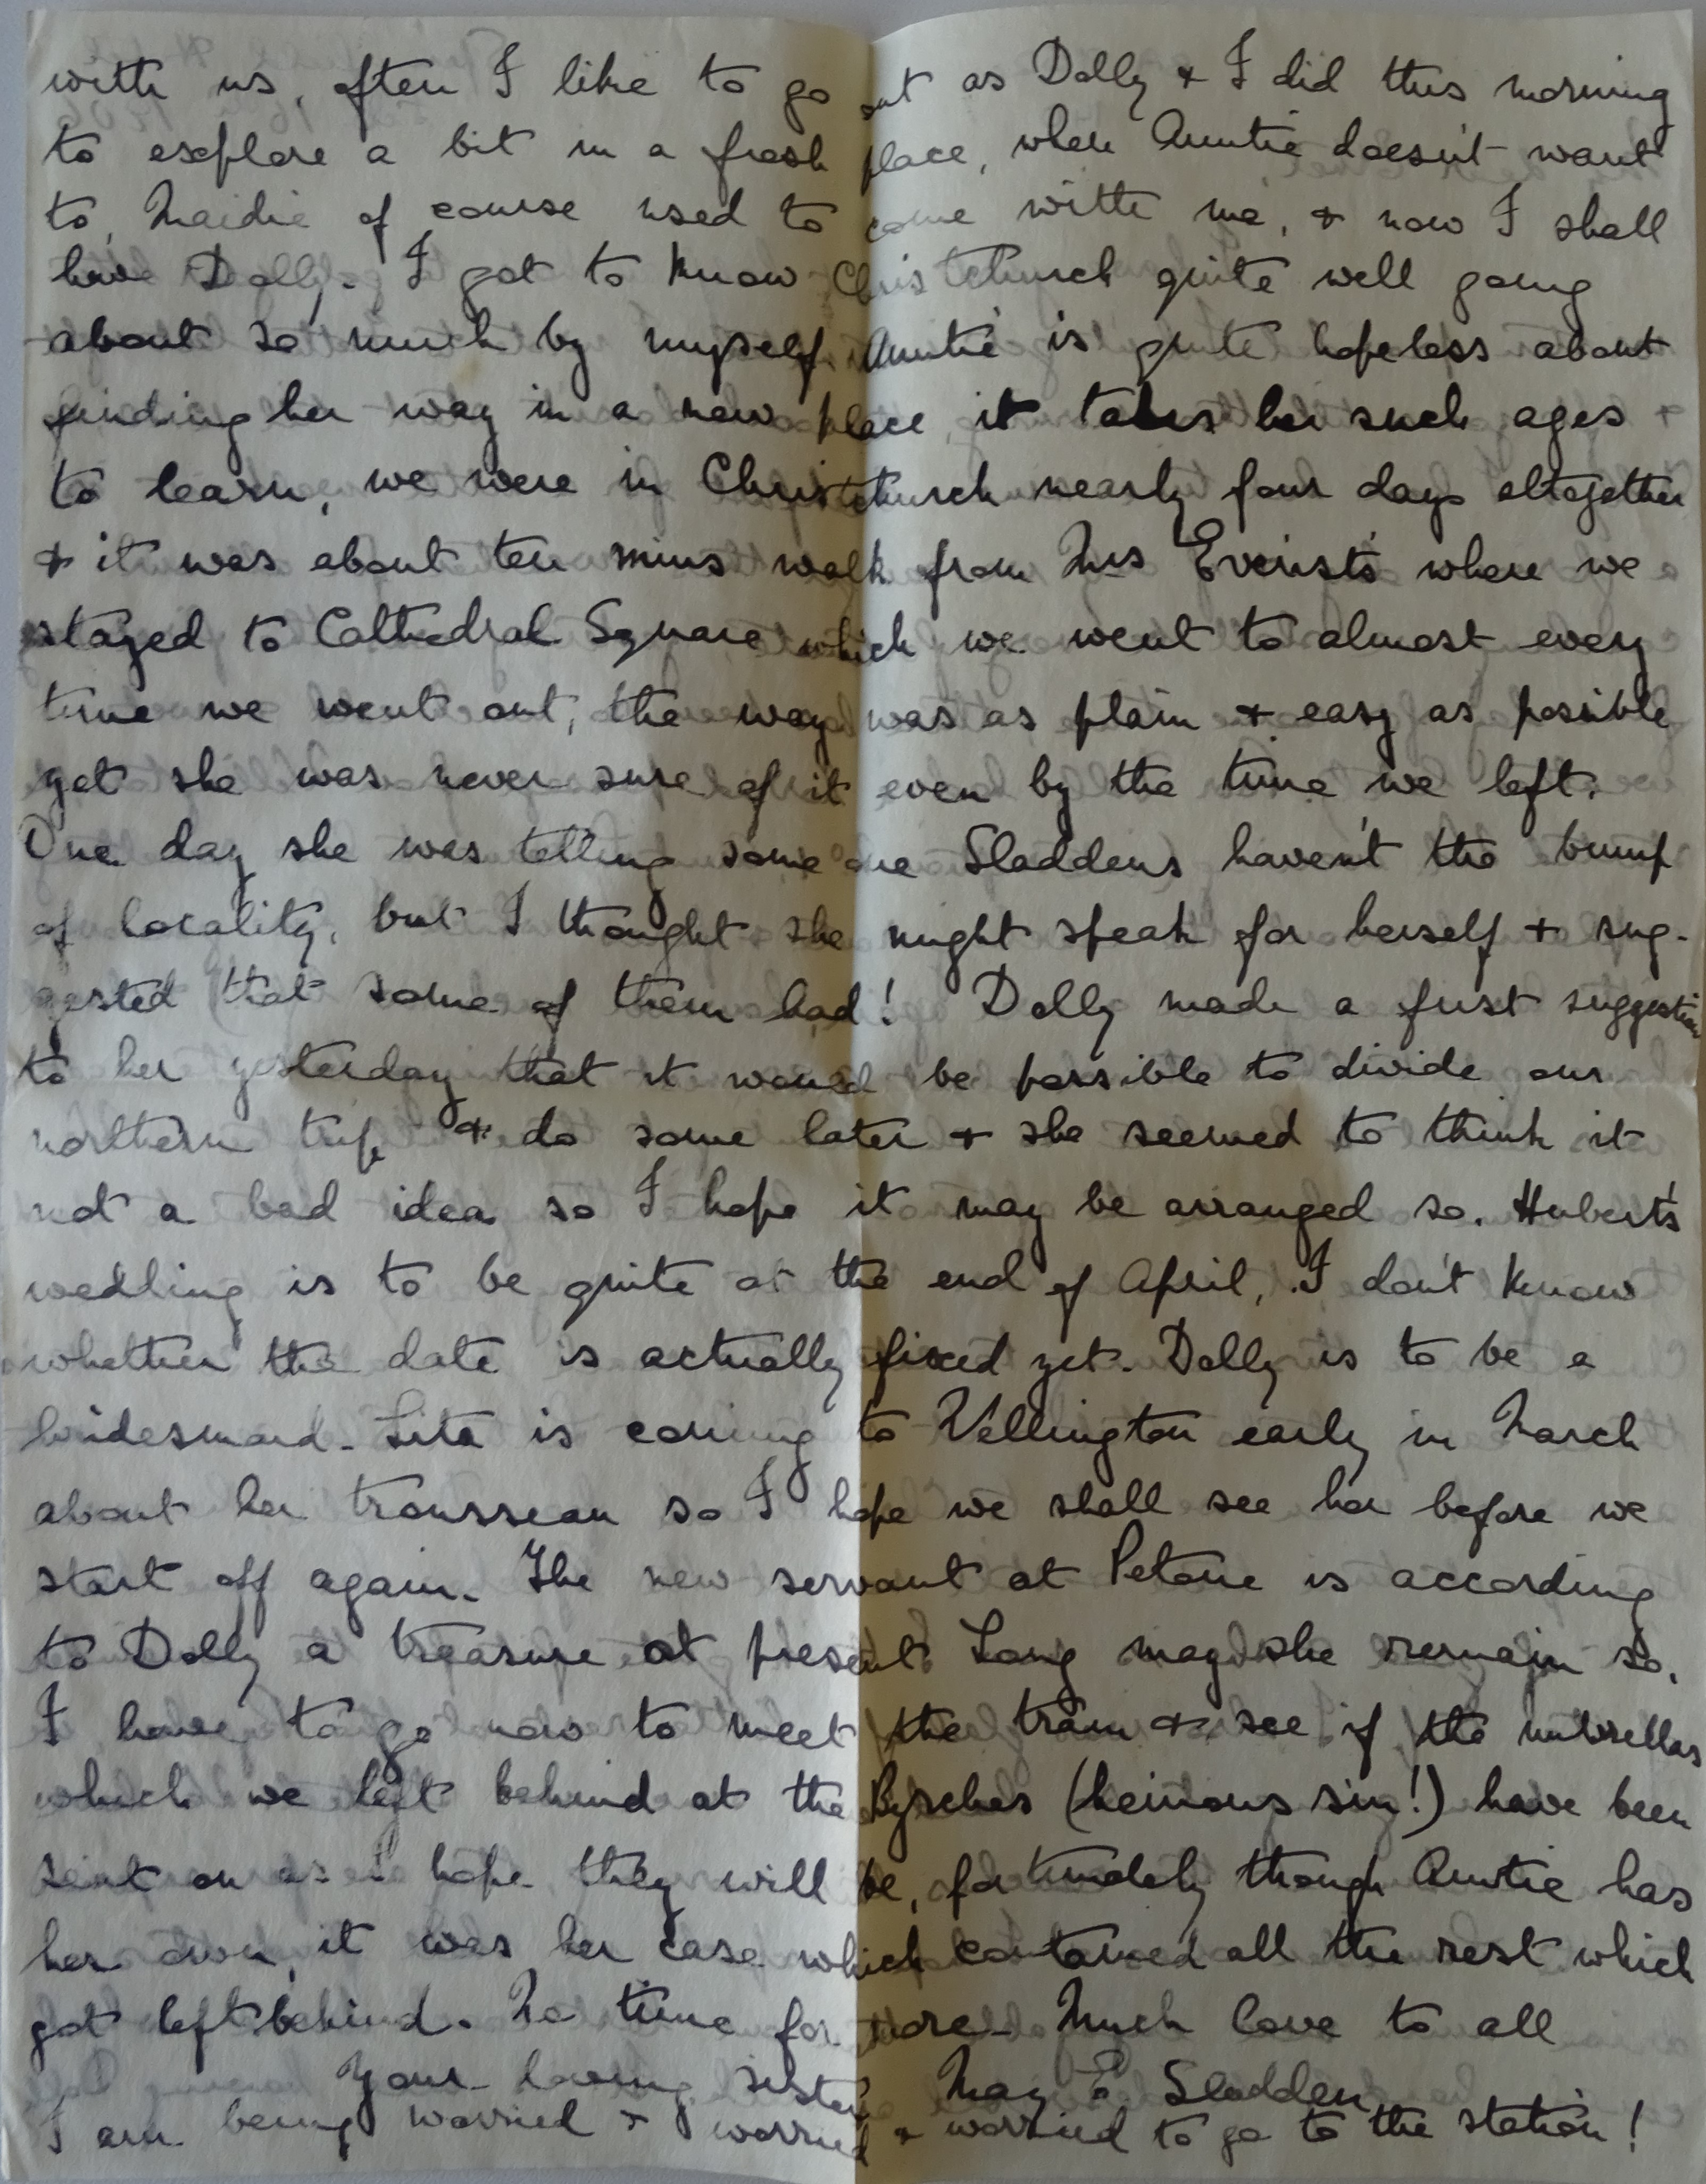 with us, often I like to go out as Dolly + I did this morning
to explore a bit in a fresh place, when Auntie doesn't want
to, Maidie of course used to come with me, + now I shall
have Dolly. I got to know Christchurch quite well going
about so much by myself. Auntie is quite hopeless about
finding her way in a new place, it takes her such ages
to learn, we were in Christchurch nearly four days altogether
+ it was about ten mins walk from Mrs Everist's where we
stayed to Cathedral Square which we went to almost every
time we went out, the way was as plain + easy as possible
yet she was never sure of it even by the time we left.
One day she was telling some one Sladdens haven't the bump
of locality, but I thought she might speak for herself + sug-
gested that some of them had! Dolly made a first suggestion
to her yesterday that it would be possible to divide our
northern trip + do some later + she seemed to think it
not a bad idea so I hope it may be arranged so. Hubert's
wedding is to be quite at the end of April, I don't know
whether the date is actually fixed yet. Dolly is to be a
bridesmaid. Lita is coming to Wellington early in March
about her trousseau so I hope we shall see her before we
start off again. The new servant at Petone is according
to Dolly a treasure at present. Long may she remain so.
I have to go now to meet the train + see if the umbrellas
which we left behind at the (heinous sin!) have been
sent on as I hope they will be, fortunately though Auntie has
her own, it was her case which contained all the rest which
got left behind. No time for more. Much love to all
Your loving sister May E Sladden
I am being worried + worried + worried to go to the station!